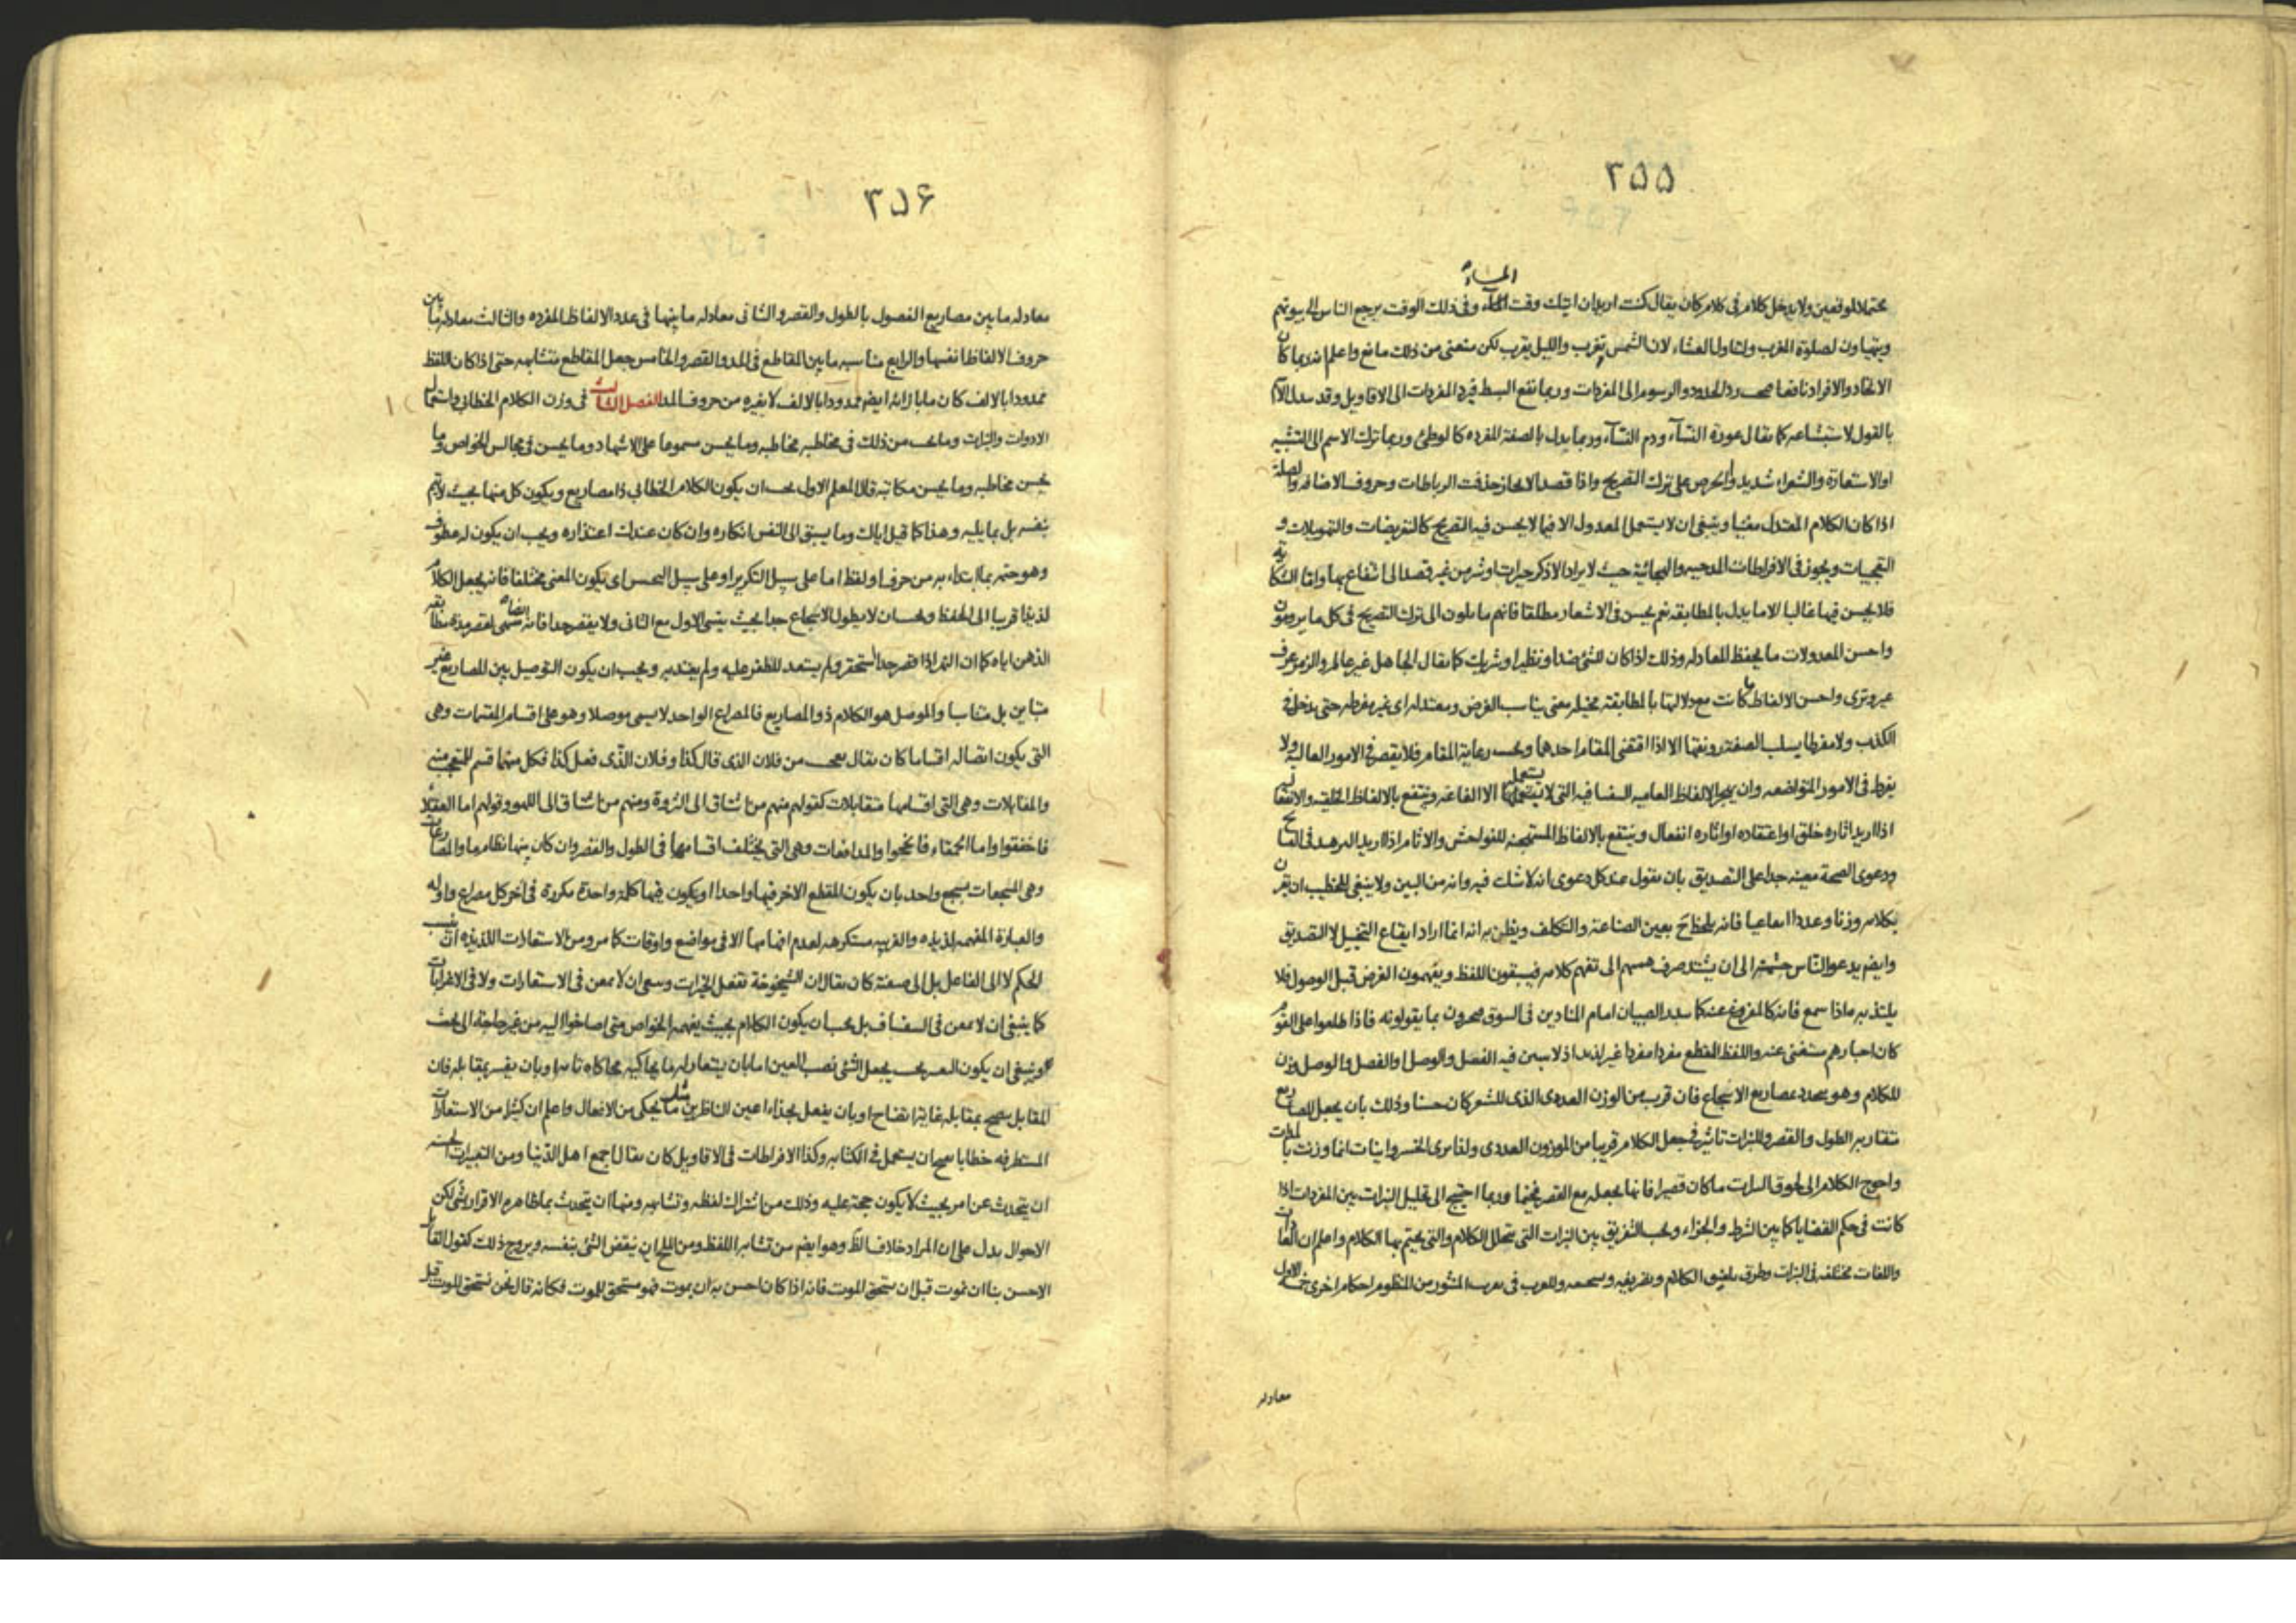 ٢٥٥
المساء
محتملا لموقعين ولا يدخل كلام فى كلام كان يقال كنت اريد ان اتيك وقت المساء وفى ذلك الوقت يرجع الناس الى بيوتهم
ويتهياون لصلوة المغرب ولتناول العشاء لان الشمس تغرب والليل يقرب لكن منعنى من ذلك مانع واعلم انه ربما كان
الاتحاد والافراد نافعا رد الحدود والرسوم الى المفردات وربما نفع البسط فيرد المفردات الى الاقاويل وقد
بالقول لاستبشاعه كما يقال عورة النساء ودم النساء وربما يدل بالصفة المفرده كالوطئ وربما ترك الاسم الى التشبيه
او الاستعارة والشعراء شديدوا الحرص على ترك التصريح واذا قصد الايجاز حذفت الرباطات وحروف الاضافه والصلة
اذا كان الكلام المعتدل مغنيا وينبغى ان لا يستعمل المعدول الا فيما لا يحسن فيه التصريح كالتعريضات والتهويلات و
التعجيبات ويجوز فى الافراطات المدحيه والهجائية حيث لا يراد الا ذكر خيرات او شر من غير قصد الى انتفاع بها واما الشكايه
فلا يحسن فيها غالبا الا ما يدل بالمطابقه نعم يحسن فى الاشعار مطلقا فانهم مايلون الى ترك التصريح فى كل ما يرومون
واحسن المعدولات ما يحفظ المعادله وذلك اذا كان للشئ ضد او نظير او شريك كما يقال الجاهل غير عالم والزمر عرف
غير وترى واحسن الالفاظ ما كانت مع دلالتها بالمطابقة مخيله معنى يناسب الغرض ومعتدله اى غير مفرطه حتى يدخل فى
الكذب ولا مفرطا يسلب الصفة رونقها الا اذا اقتضى المقام احدهما ويجب رعاية المقام فلا يقصر فى الامور العالية ولا
يفرط فى الامور المتواضعه وان يهجر الالفاظ العاميه السفسافيه التى لا يستعملها الا الفاغه وينتفع بالالفاظ الخلقيه والانتفاليه
اذا اريد اثاره خلق او اعتقاده او اثاره انفعال وينتفع بالالفاظ المستهجنه للفواحش والاثام اذا اريد الزهد فى القبايح
ودعوى الصحة معينه جدا على التصديق بان يقول عند كل دعوى انه لا شك فيه وانه من البين ولا ينبغى للخطيب ان يقرن
بكلامه وزنا وعددا ايقاعيا فانه يلحظ ح بعين الصناعة والتكلف ويظن به انه انما اراد ايقاع التخييل لا التصديق
وايضم يدعو الناس حشمته الى ان يشتد صرف همهم الى تفهم كلامه فيسبقون اللفظ ويفهمون الغرض قبل الوصول فلا
يلتذ به ماذا سمع فانه كالمفروغ عنه كما الصبيان امام المنادين فى السوق بما يقولونه فاذا طلعوا على القوم
كان اخبارهم مستغنى عنه واللفظ المقطع مفردا مفردا غير لذيذ اذ لا يبين فيه الفصل والوصل اوالفصل والوصل وزن
للكلام وهو يحدد بمصاريع الاسجاع فان قرب من الوزن العددى الذى للشعر كان حسنا وذلك بان يجعل المصاريع
متقاربه الطول والقصر وللنبرات تاثير فى جعل الكلام قريبا من الموزون العددى ولغا اثبات انما وزنت بالمدات
واحوج الكلام الى لحوق النبرات ما كان قصيرا فانها يجعله مع القصر فخيما وربما احتيج الى تخليل النبرات بين المفردات اذا
كانت فى حكم القضايا كما بين الشرط والجزاء ويجب التفريق بين النبرات التى يتخلل الكلام والتى يختم بها الكلام واعلم ان العادات
واللغات مختلفه فى النبرات وطرق تلفيق الكلام وتفريقه وللعرب فى المنثور من المنظوم احكام اخرى خمسه الاول
معادله
٢٥۶
معادله ما بين مصاريع الفصول بالطول والقصر والثانى معادله ما بينها فى عدد الالفاظ المفرده والثالث معادله ما بين
حروف الالفاظ انفسها والرابع مناسبه ما بين المقاطع فى المد والقصر والخامس جعل المقاطع متشابهه حتى اذا كان اللفظ
ممدودا بالالف كان ما بازائه ايضم ممدودا بالالف لا بغيره من حروف المد الفصل الثالث فى وزن الكلام الخطابى واستعمال
الادوات والنبرات وما يجب من ذلك فى مخاطبه مخاطبه وما يحسن مسموعا على الاشهاد وما يحسن فى مجالس الخواص وما
يحسن مخاطبه وما يحسن مكاتبة قال المعلم الاول يجب ان يكون الكلام الخطابى ذا مصاريع ويكون كل منها بحيث لا يتم
بنفسه بل بما يليه وهذا كما قيل اياك وما يسبق الى النفس انكاره وان كان عندك اعتذاره ويجب ان يكون له عطوف
وهو ختمه بما ابتداء به من حرف او لفظ اما على سبيل التكرير او على سبيل التجنيس اى يكون المعنى مختلفا فانه يجعل الكلام
لذيذا قريبا الى الحفظ ويجب ان لا يطول الاسجاع جدا بحيث ينسى الاول مع الثانى ولا يقصر جدا فانه لقصر مدة مطابقه
الذهن اياه كما ان النهر اذا قصر جدا استحقر ولم يستعد للظفر عليه ولم يعتد به ويجب ان يكون التوصيل بين المصاريع غير
متباين بل متناسبا والموصل هو الكلام ذو المصاريع فالمصراع الواحد لا يسمى موصلا وهو على اقسام المقسمات وهى
التى يكون اتصاله اقساما كان يقال يعجب من فلان الذى قال كذا وفلان الذى فعل كذا فكل منهما قسم للمتعجب منه
والمقابلات وهى التى اقسامها متقابلات كقولهم منهم من اشتاق الى الثروة ومنهم من اشتاق الى اللهو وقولهم اما العقلاء
فاخفقوا واما الحمقاء فانجحوا والمدافعات وهى التى يختلف اقسامها فى الطول والقصر وان كان بينها نظام ما والمضارعات
وهى المسجعات بسجع واحد بان يكون المقطع الاخر فيها واحدا او يكون فيها كلمة واحدة مكررة فى اخر كل مصراع واوله
والعبارة المفهمه لذيذه والغريبه مستكرهه لعدم افهامها الا فى مواضع واوقات كما مر ومن الاستعارات اللذيذه ان ينسب
الحكم لا الى الفاعل بل الى صفته كان يقال ان الشيخوخة تفعل الخيرات وينبغى ان لا يمعن فى الاستعارات ولا فى الاغرابات
كما ينبغى ان لا يمعن فى السفساف بل يجب ان يكون الكلام بحيث يفهمه الخواص متى اصاخوا اليه من غير حاجة الى بحث
وينبغى ان يكون التعبير بحيث يجعل الشئ نصب العين اما بان يستعار له ما يحاكيه محاكاه تامه او بان يفسر بمقابله فان
المقابل يتضح بمقابله غاية اتضاح او بان يفعل بحذاء اعين الناظرين مثل ما يحكى من الافعال واعلم ان كثيرا من الاستعارات
المستطرفه خطابا يقبح ان يستعمل فى الكتابه وكذا الافراطات فى الاقاويل كان يقال اجمع اهل الدنيا ومن التعبيرات الحسنه
ان يتحدث عن امر بحيث لا يكون حجة عليه وذلك من اشتراك لفظه وتشابهه ومنها ان يتحدث بما ظاهره الاقرار بشئ لكن
الاحوال يدل على ان المراد خلاف الظ وهو ايضم من تشابه اللفظ ومن الملح ان ينقض الشئ بنفسه ويروج ذلك كقول القائل
الاحسن بنا ان نموت قبل ان نستحق الموت فانه اذا كان احسن به ان يموت فهو مستحق للموت فكانه قال نحن نستحق الموت قبل